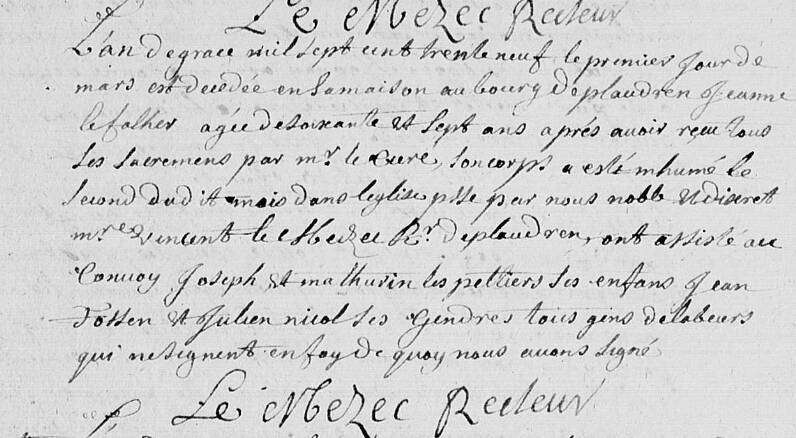 Le Mezec Recteur
L'an de grace mil sept cent trente neuf le premier jour de
mars est decedée en sa maison au bourg de plaudren Jeanne
le falher agée de soixante et sept ans aprés avoir reçu tous
ses sacremens par mr. le Curé, son corps a esté inhumé le
second dudit mois dans l'eglise psse par nous noble et discret
mre vincent le Mezec Rr. de plaudren, ont assisté au
Convoy Joseph et mathurin les pelliers ses enfans Jean
et Julien nicol ses Gendres tous gins de labeurs
qui ne signent en foy de quoy nous avons signé
Le Mezec Recteur